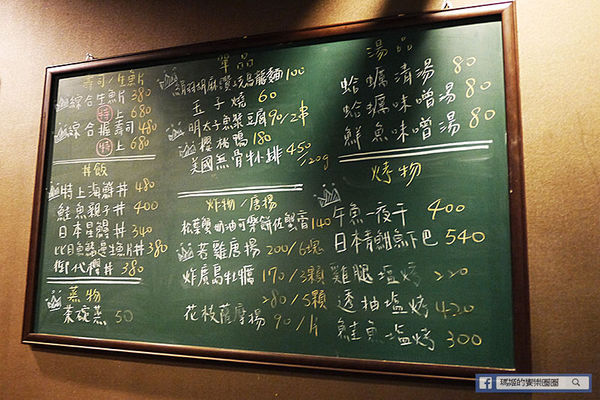 壽司/生魚片
綜合生魚片 380
特上 680
綜合握壽司 480
特上 680
丼飯
特上海鮮丼 480
鮭魚親子丼 400
日本星鰻丼 340
比目魚鰭邊生魚片丼 380
御代櫻丼 380
蒸物
茶碗蒸 50
單品
胡麻讚岐烏龍麵 100
玉子燒 60
明太子魚漿豆腐 90/2串
櫻桃鴨 180
美國無骨牛小排 450/120g
炸物/唐揚
松葉蟹奶油可樂餅佐蟹膏 140
若雞唐揚 200/6塊
炸廣島牡蠣 170/3顆
280/5顆
花枝薩摩揚 90/片
湯品
蛤蠣清湯 80
蛤蠣味噌湯 80
鮮魚味噌湯 80
烤物
午魚一夜干 400
日本青魽魚下巴 540
雞腿塩烤 220
透抽塩烤 420
鮭魚塩烤 300
瑪姬的食樂圈圈